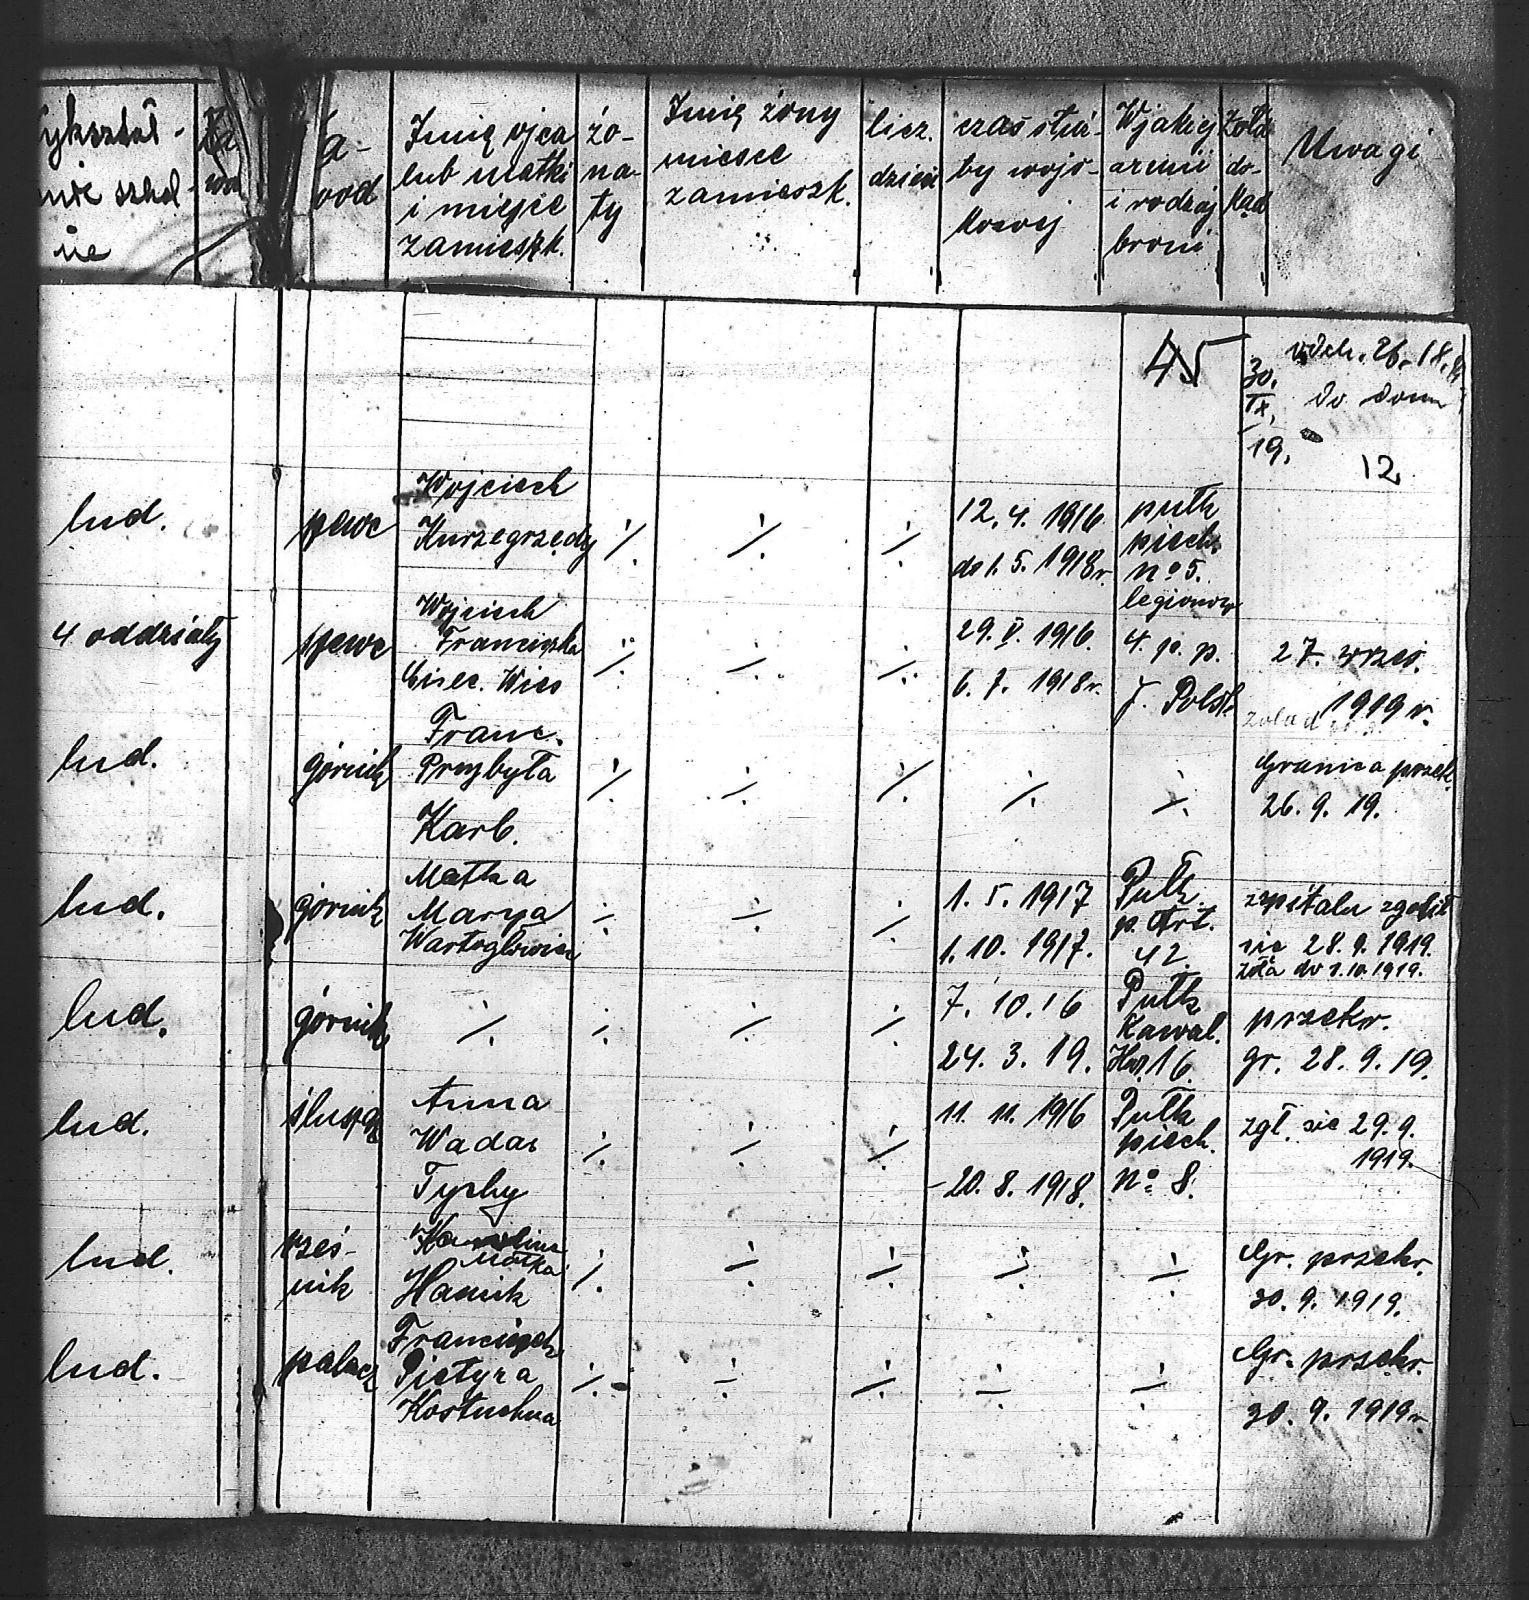 Wykształ-
nie szkol
ne
Za
wód
Imię ojca
lub matki
i miejsce
zamieszk.
żo-
na-
ty
Imię żony
miesce
zamieszk.
licz.
dzieci
czas służ-
by wojs-
kowej
W jakiej
armii
i rodzaj
broni
Żołd
do-
kąd
Uwagi
45
30.
IX.
19.
odch. 26.
do domu
12
lud.
szewc
Wojciech
Kurzegrzędy
÷ ÷ ÷
12. 4. 1916
do 1. 5. 1918r.
pułk
piech.
no 5.
legionów
4 oddziały
szewc
Wojciech
Franciszka
÷ ÷ ÷
29. V. 1916.
6. 7. 1918r.
4. p. p.
27. wrześ.
1919 r.
lud.
górnik
Franc.
Przybyła
Karb.
÷ ÷ ÷ ÷ ÷
Granica przek.
26. 9. 19.
lud.
górnik
Matka
Marya
÷ ÷ ÷
1. 5. 1917
1. 10. 1917.
Pułk
p. Art.
42.
szpitalu zgłosił
się 28. 9. 1919.
żołd do 1.10.1919.
lud.
górnik
÷ ÷ ÷ ÷
7. 10. 16
24. 3. 19.
Pułk
Kawal.
16.
przekr.
gr. 28. 9. 19.
lud.
ślusarz
Anna
Wadas
Tychy
÷ ÷ ÷
11. 11. 1916
-20. 8. 1918.
Pułk
piech.
no 8.
zgł. się 29. 9.
1919.
lud.
rzeź-
nik
Karolina
Matka
Hanuik
÷ ÷ ÷ ÷ ÷
Gr. przekr.
30. 9. 1919.
lud.
palacz
Franciszek
Pietyra
Kostuchna
÷ ÷ ÷ ÷ ÷
Gr. przekr.
30. 9. 1919r.